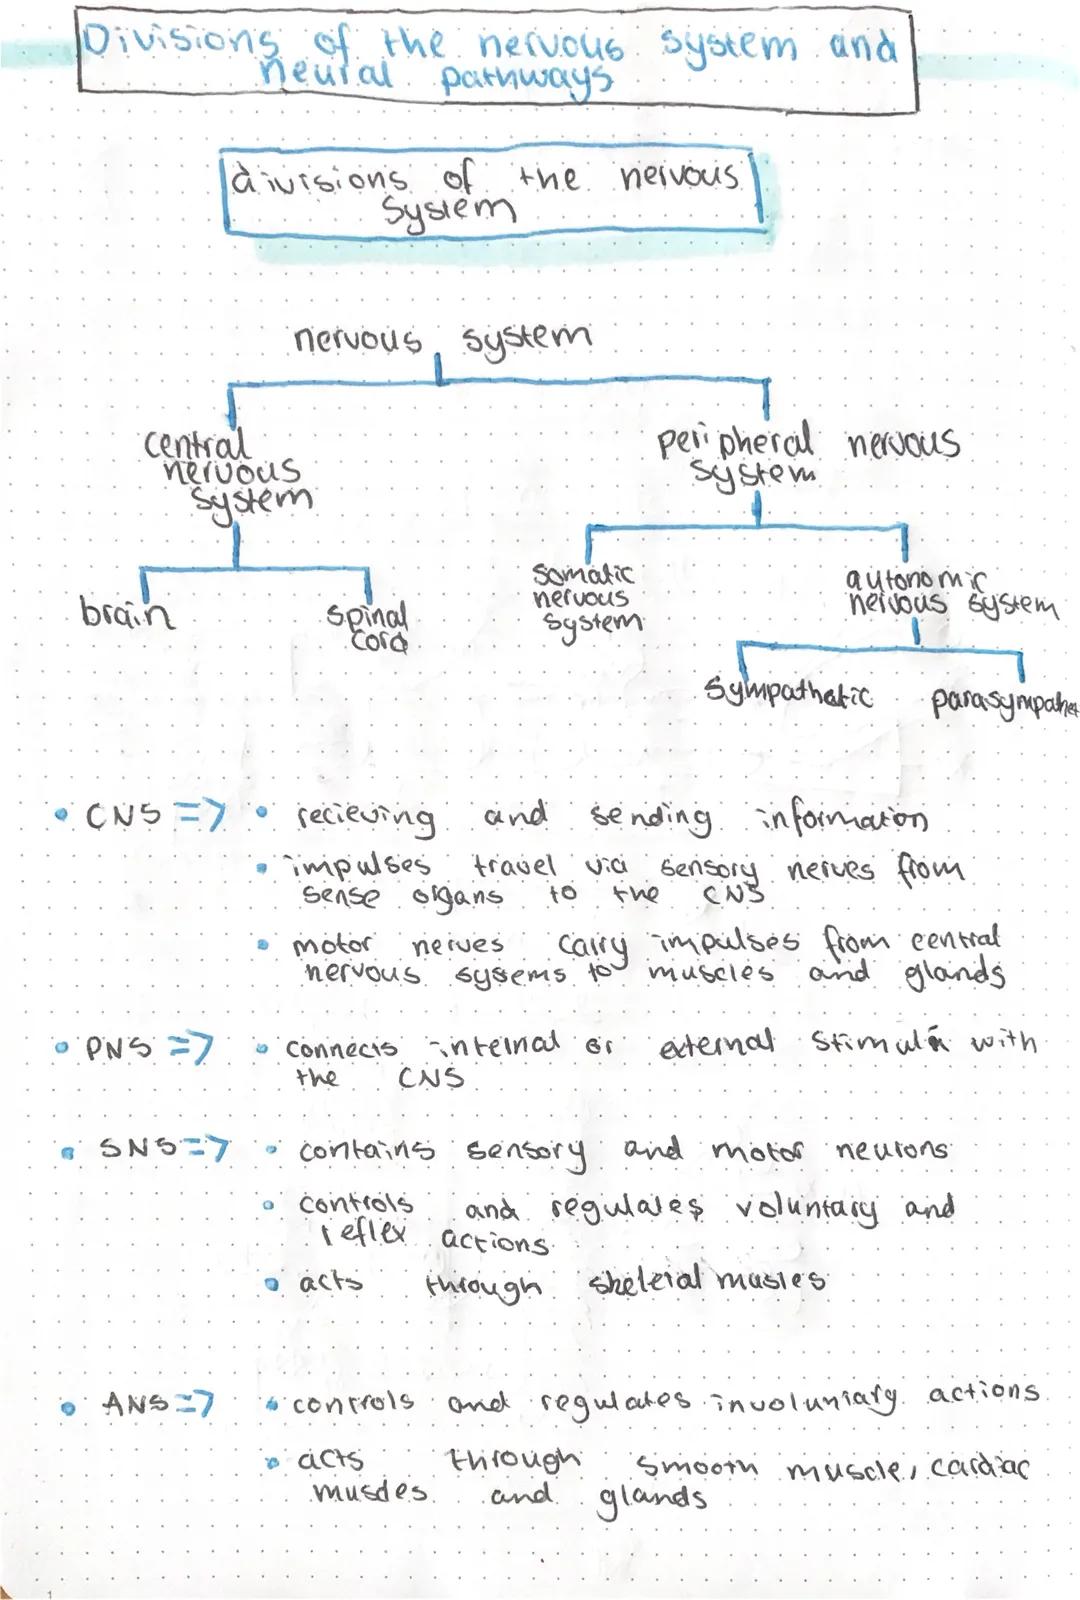 Divisions of the nervous system and
neural pathways
divisions of the nervous
system
nervous system
central
nervous
system
peripheral nervous
system
brain
spinal
cord
somatic
nervous
system
autonomic
nervous system
sympathetic
parasympathet
• CNS => • recieving and sending information
• impulses travel via sensory nerves from
sense organs to the CNS
• motor nerves carry impulses from central
nervous sysems to muscles and glands
• PNS => • connects internal or external stimula with
the CNS
• SNS => • contains sensory and motor neurons
• controls and regulates voluntary and
reflex actions
• acts through skeletal musles
• ANS => • controls and regulates involuntary actions
• acts through smooth muscle, cardiac
muscles and glands
1